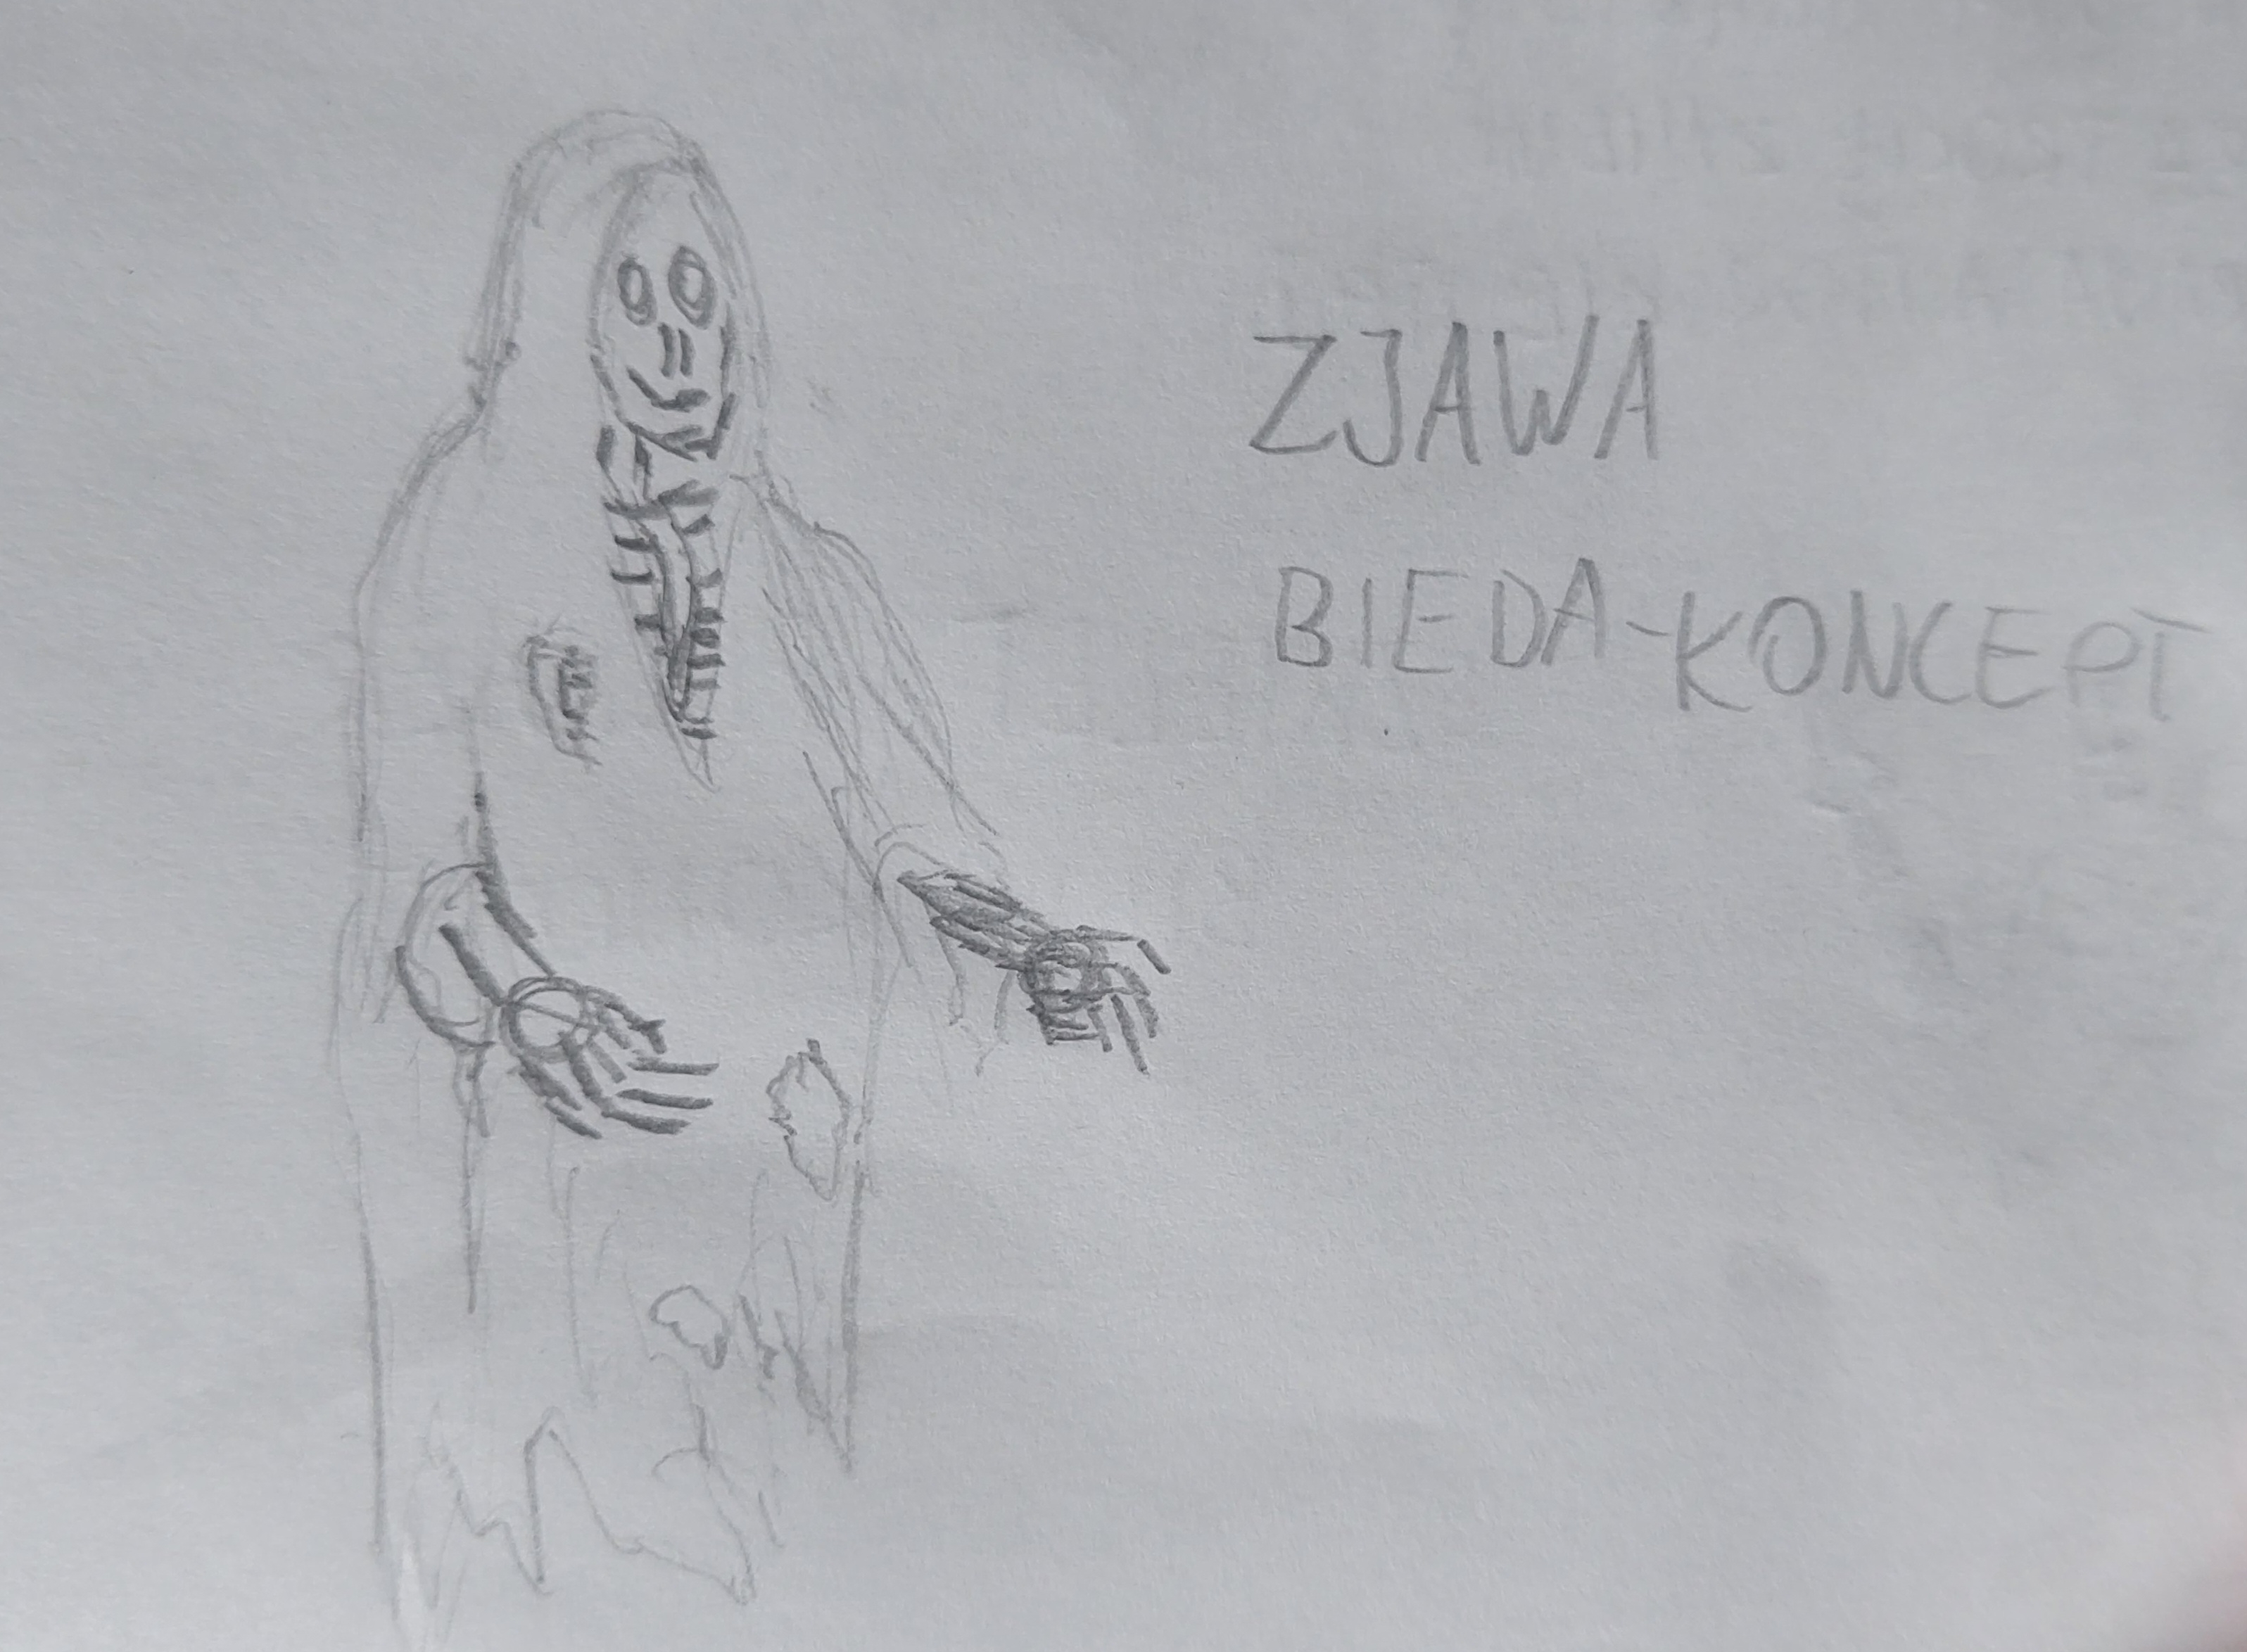 ZJAWA
BIEDA-KONCEPT